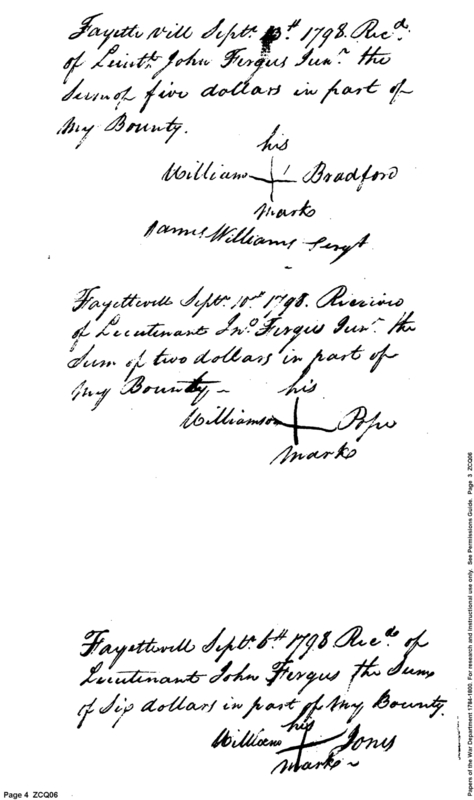 Fayette vill Septr. 13th. 1798. Recd.
of Lieutt. John Fergus Junr. the
Sum of five dollars in part of
my Bounty.
his
William + Bradford
mark
James Williams Sergt
Fayettevill Septr. 10th 1798. Received
of Lieutenant Jno. Fergus Junr. the
Sum of two dollars in part of
my Bounty -
his
Williamson + Pope
mark
Fayettevill Septr. 6th 1798 Recd. of
Lieutenant John Fergus the Sum
of Six dollars in part of my Bounty.
his
William + Jones
mark
Page 4 ZCQ06
Papers of the War Department 1784-1800. For research and instructional use only. See Permissions Guide. Page 3 ZCQ06